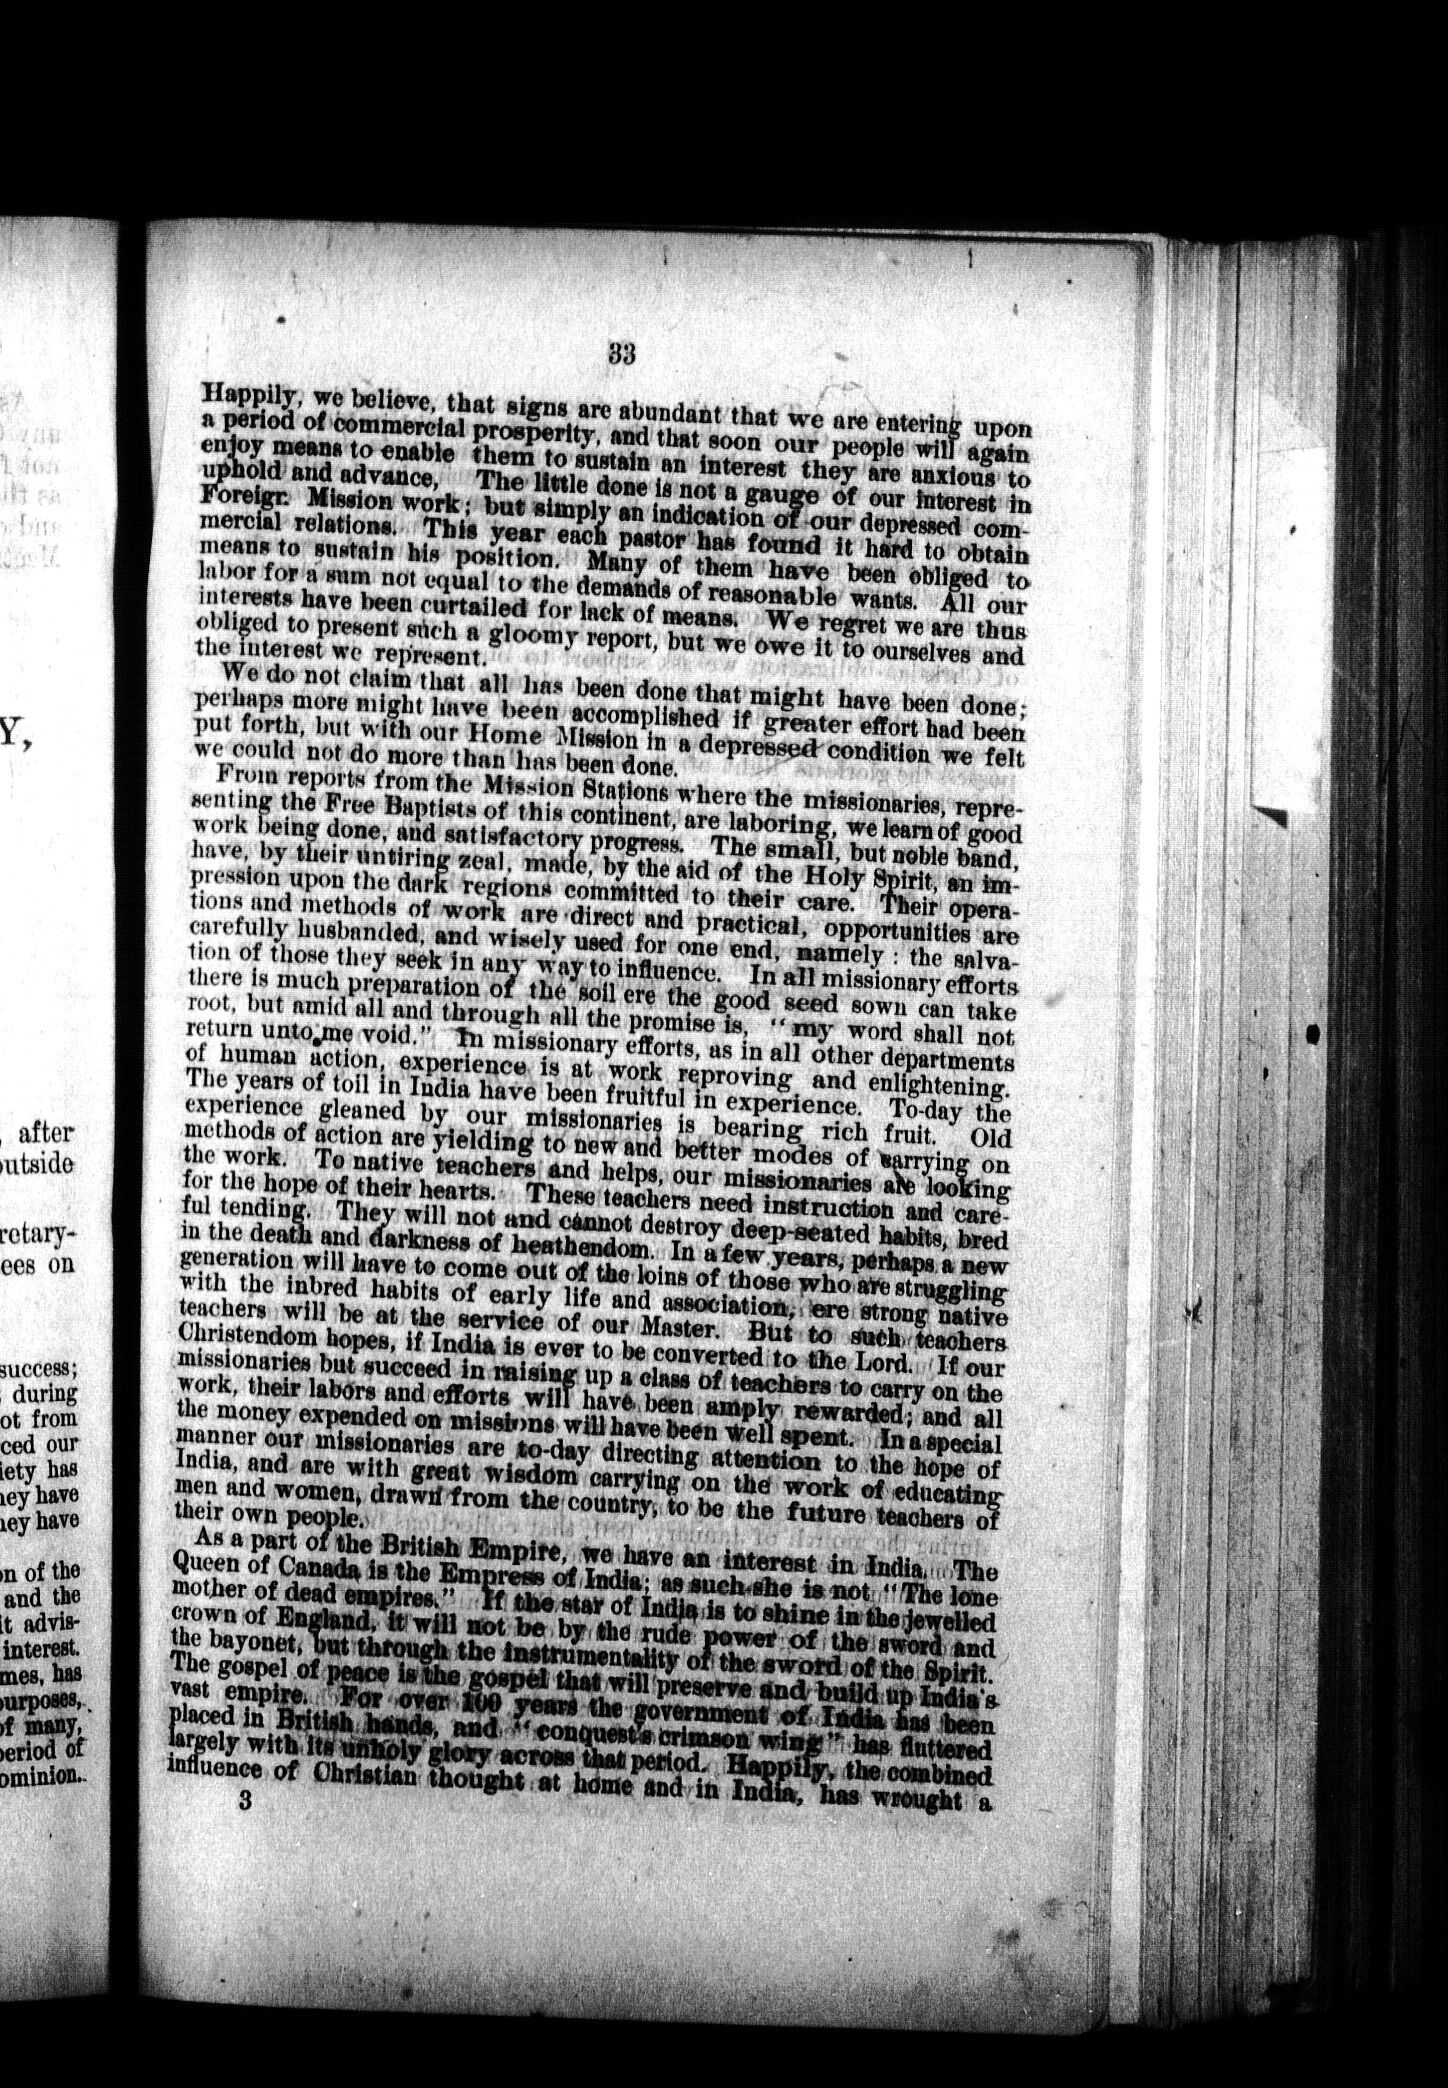 Y,
, after
outside
retary-
ees on
success;
during
ot from
ced our
iety has
hey have
hey have
on of the
and the
it advis-
interest.
mes, has
purposes,
of many,
period of
ominion.
33
Happily, we believe, that signs are abundant that we are entering upon
a period of commercial prosperity, and that soon our people will again
enjoy means to enable them to sustain an interest they are anxious to
uphold and advance, The little done is not a gauge of our interest in
Foreign Mission work; but simply an indication of our depressed com-
mercial relations. This year each pastor has found it hard to obtain
means to sustain his position. Many of them have been obliged to
labor for a sum not equal to the demands of reasonable wants. All our
interests have been curtailed for lack of means. We regret we are thus
obliged to present such a gloomy report, but we owe it to ourselves and
the interest we represent.
We do not claim that all has been done that might have been done;
perhaps more might have been accomplished if greater effort had been
put forth, but with our Home Mission in a depressed condition we felt
we could not do more than has been done.
From reports from the Mission Stations where the missionaries, repre-
senting the Free Baptists of this continent, are laboring, we learn of good
work being done, and satisfactory progress. The small, but noble band,
have, by their untiring zeal, made, by the aid of the Holy Spirit, an im-
pression upon the dark regions committed to their care. Their opera-
tions and methods of work are direct and practical, opportunities are
carefully husbanded, and wisely used for one end, namely : the salva-
tion of those they seek in any way to influence. In all missionary efforts
there is much preparation of the soil ere the good seed sown can take
root, but amid all and through all the promise is, "my word shall not
return unto me void." In missionary efforts, as in all other departments
of human action, experience is at work reproving and enlightening.
The years of toil in India have been fruitful in experience. To-day the
experience gleaned by our missionaries is bearing rich fruit. Old
methods of action are yielding to new and better modes of carrying on
the work. To native teachers and helps, our missionaries are looking
for the hope of their hearts. These teachers need instruction and care-
ful tending. They will not and cannot destroy deep-seated habits, bred
in the death and darkness of heathendom. In a few years, perhaps a new
generation will have to come out of the loins of those who are struggling
with the inbred habits of early life and association, ere strong native
teachers will be at the service of our Master. But to such teachers
Christendom hopes, if India is ever to be converted to the Lord. If our
missionaries but succeed in raising up a class of teachers to carry on the
work, their labors and efforts will have been amply rewarded; and all
the money expended on missions will have been well spent. In a special
manner our missionaries are to-day directing attention to the hope of
India, and are with great wisdom carrying on the work of educating
men and women, drawn from the country, to be the future teachers of
their own people.
As a part of the British Empire, we have an interest in India. The
Queen of Canada is the Empress of India; as such she is not "The lone
mother of dead empires." If the star of India is to shine in the jewelled
crown of England, it will not be by the rude power of the sword and
the bayonet, but through the instrumentality of the sword of the Spirit.
The gospel of peace is the gospel that will preserve and build up India's
vast empire. For over 100 years the government of India has been
placed in British hands, and "conquest's crimson wing" has fluttered
largely with its unholy glory across that period. Happily, the combined
influence of Christian thought at home and in India, has wrought a
3